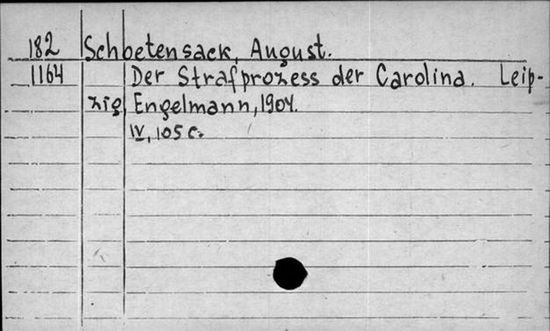 182 Schoetensack, August.
1164 Der Strafprozess der Carolina. Leip-
zig, Engelmann, 1904.
IV, 105 c.